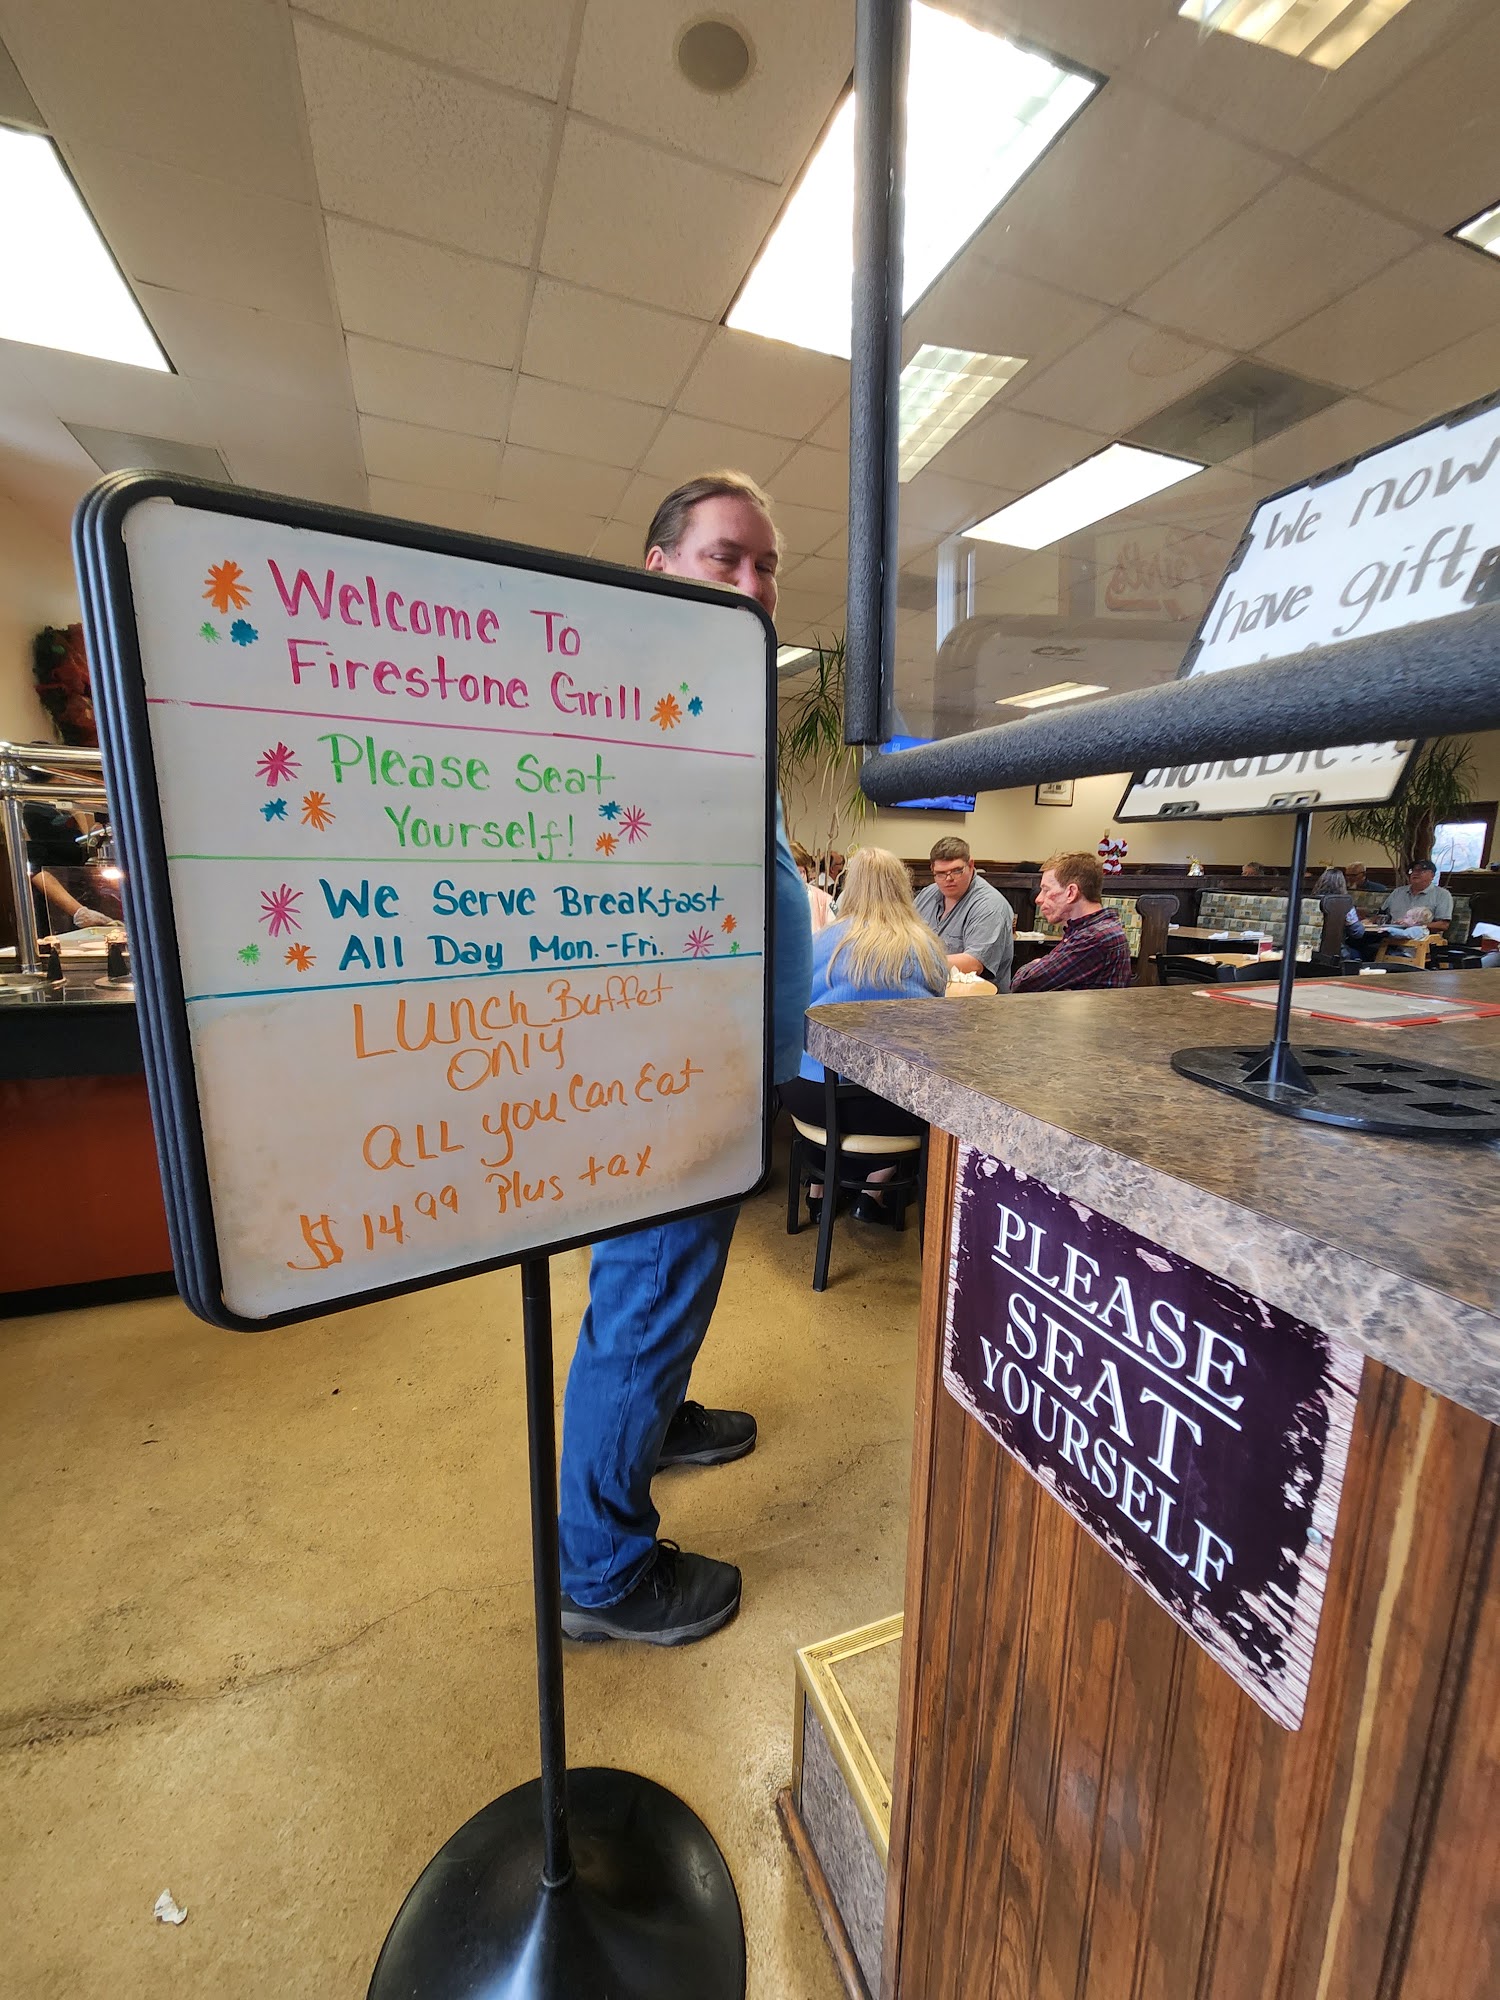 Welcome To
Firestone Grill
Please Seat
Yourself!
We Serve Breakfast
All Day Mon.-Fri.
Lunch Buffet
only
all you Can Eat
$14.99 Plus tax
We now
have gift
available...
PLEASE
SEAT
YOURSELF